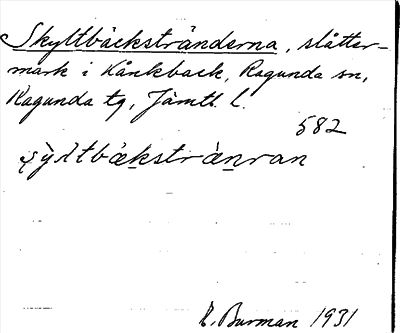 Skyltbäcksträndema, slåtter-
mark i Kånkback, Ragunda sn,
Ragunda tg, Jämtl. l.
582
ʂỳltbäkstrànran
R. Burman 1931